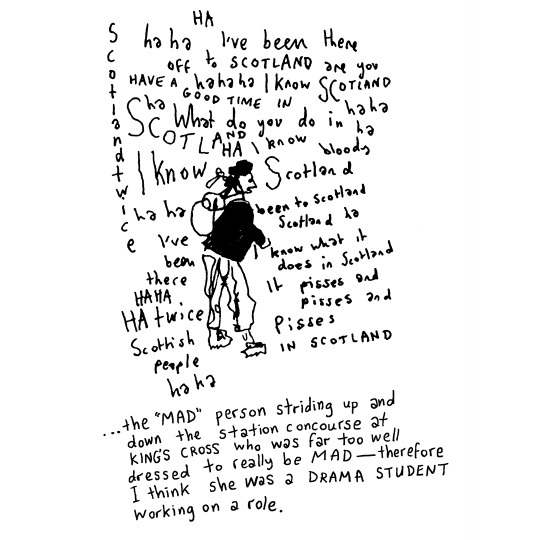 HA
ha ha I've been there
OFF to SCOTLAND are you
HAVE A hahaha I know SCOTLAND
GOOD TIME IN
ha haha
SCOTLAND What do you do in ha
HA I know bloody
I know Scotland
Scotland twice
ha ha been to Scotland
Scotland ha
I've I know what it
been does in Scotland
there It pisses and
HAHA pisses and
HA twice Pisses
Scottish IN SCOTLAND
people
ha ha
...the "MAD" person striding up and
down the station concourse at
KING'S CROSS who was far too well
dressed to really be MAD — therefore
I think she was a DRAMA STUDENT
working on a role.